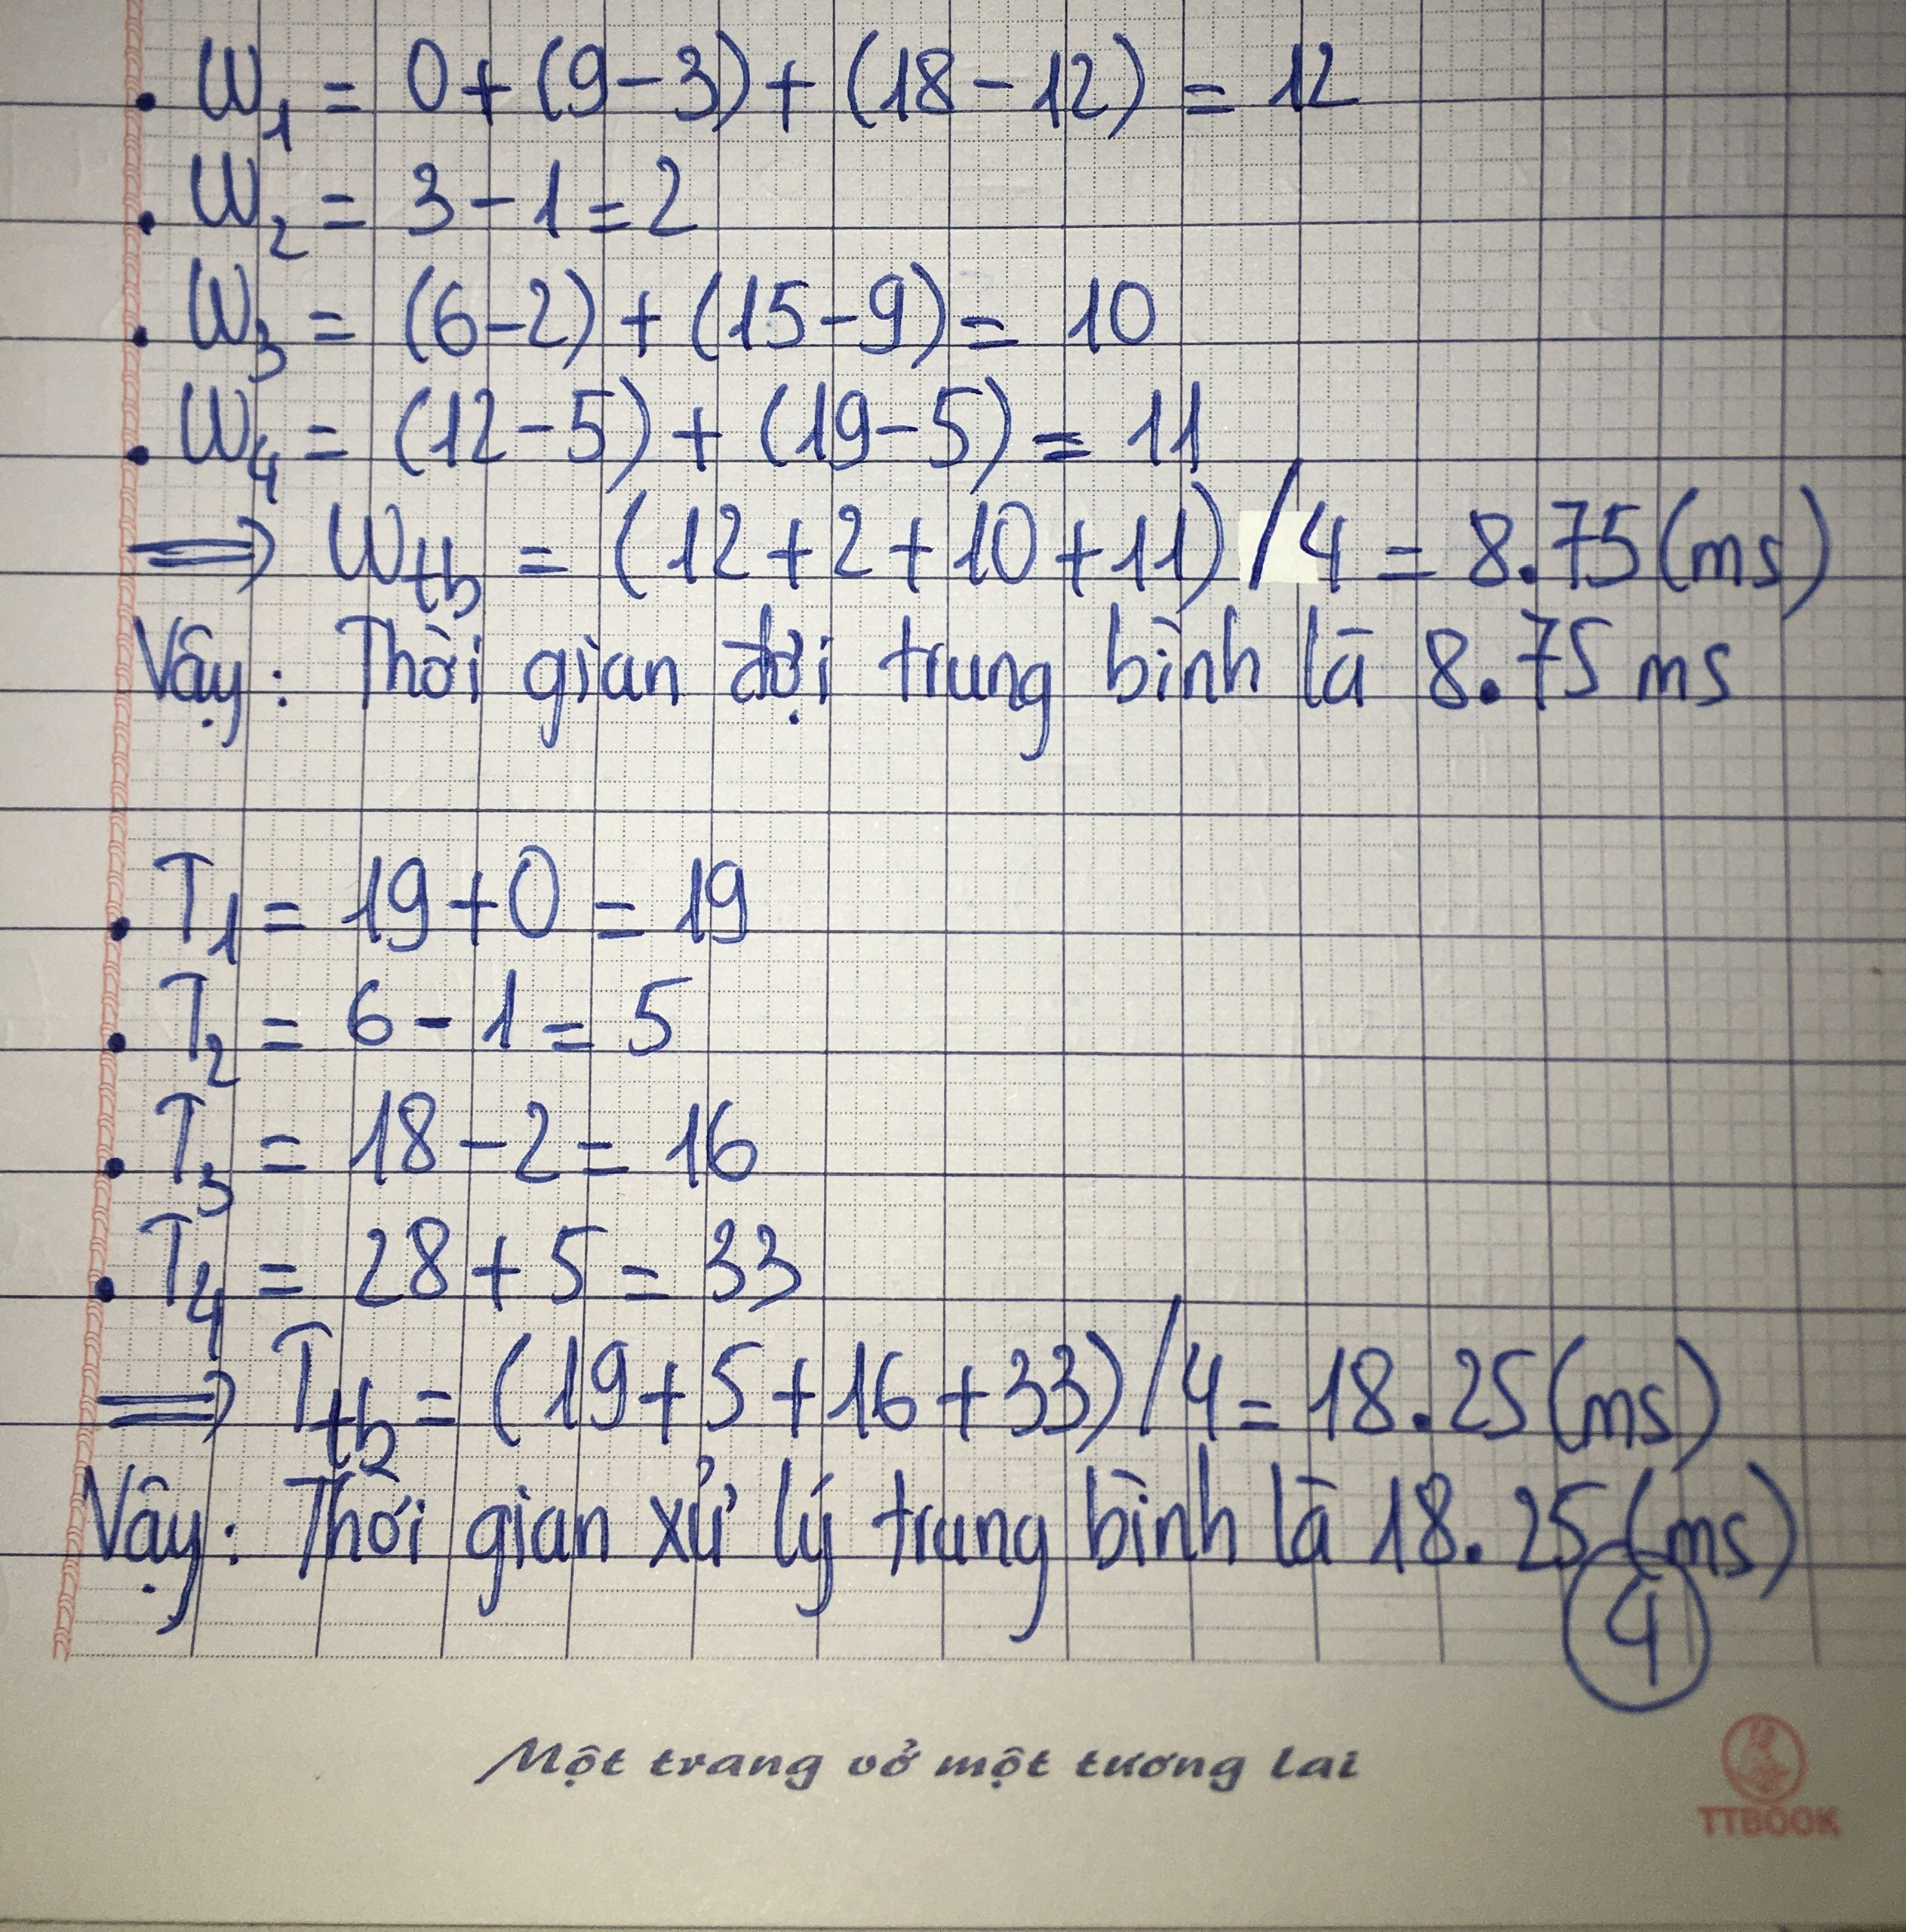 • W1 = 0 + (9 - 3) + (18 - 12) = 12
• W2 = 3 - 1 = 2
• W3 = (6 - 2) + (15 - 9) = 10
• W4 = (12 - 5) + (19 - 5) = 11
⟹ Wtb = (12 + 2 + 10 + 11) / 4 = 8.75 (ms)
Vậy: Thời gian đợi trung bình là 8.75 ms
• T1 = 19 + 0 = 19
• T2 = 6 - 1 = 5
• T3 = 18 - 2 = 16
• T4 = 28 + 5 = 33
⟹ Ttb = (19 + 5 + 16 + 33) / 4 = 18.25 (ms)
Vậy: Thời gian xử lý trung bình là 18.25 (ms)
4
Một trang vở một tương lai
TTBOOK